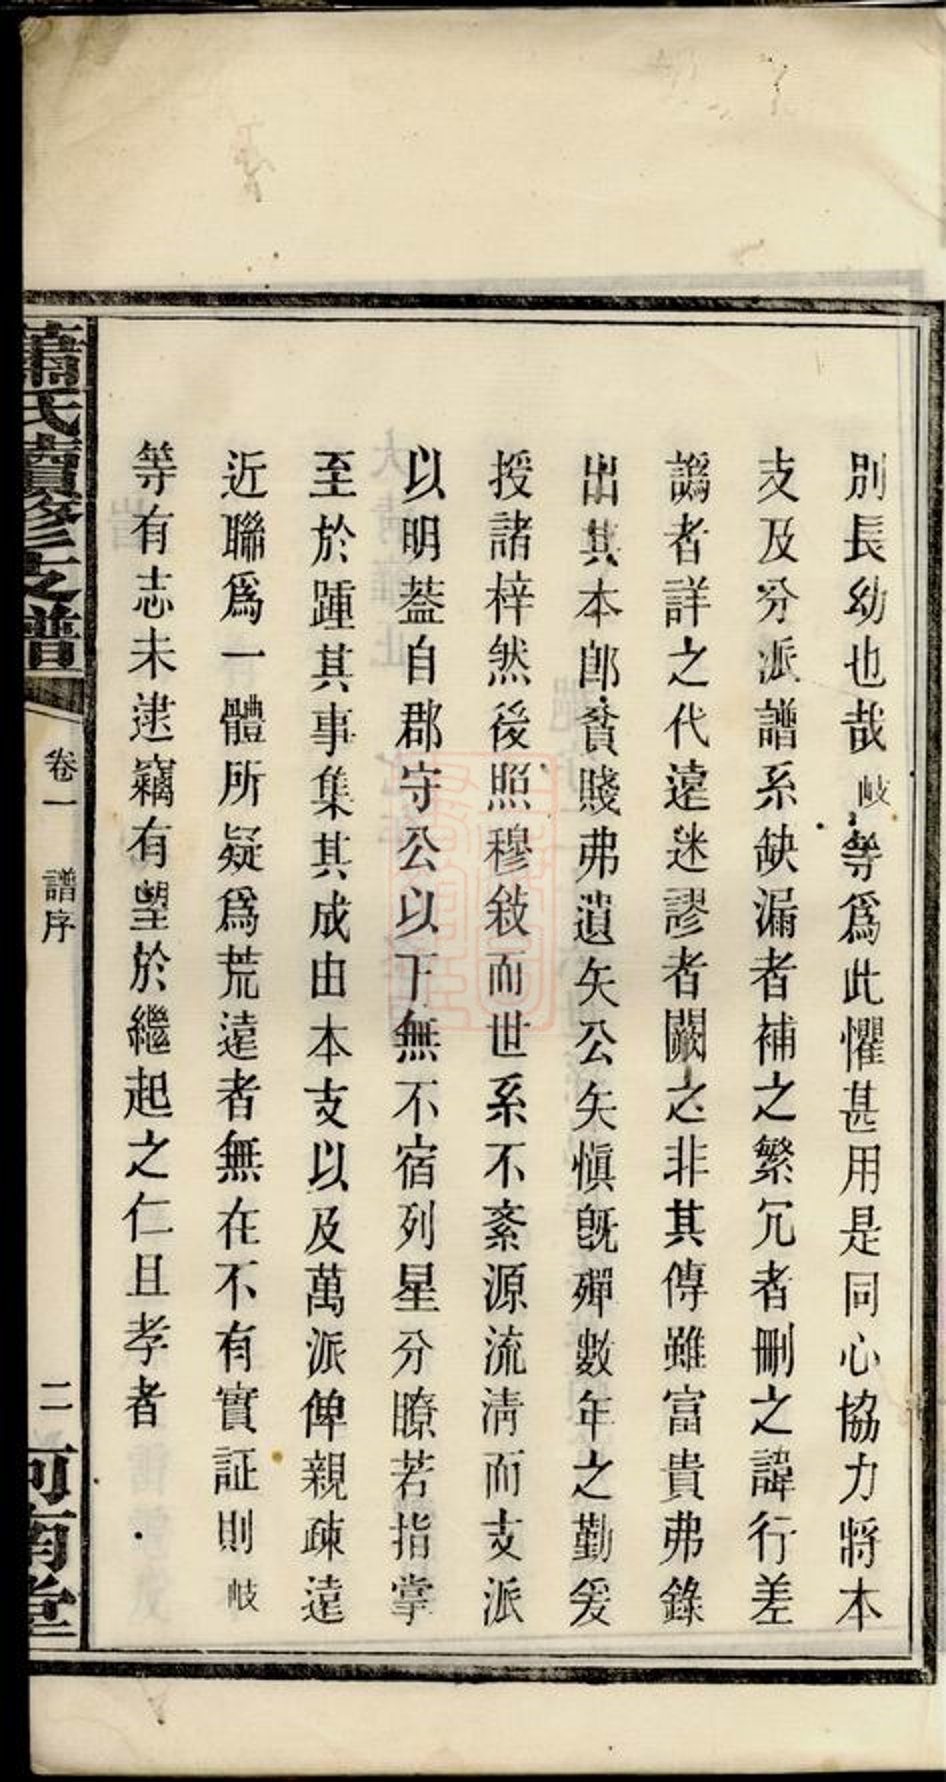 別長幼也哉岐等爲此懼甚用是同心協力將本
支及分派譜系缺漏者補之繁冗者刪之諱行差
譌者詳之代遠迷謬者闕之非其傳雖富貴弗錄
出其本郎貧賤弗遺矢公矢愼旣殫數年之勤爰
授諸梓然後照穆敍而世系不紊源流淸而支派
以明葢自郡守公以下無不宿列星分瞭若指掌
至於踵其事集其成由本支以及萬派俾親疎遠
近聯爲一體所疑爲荒遠者無在不有實証則岐
等有志未逮竊有望於繼起之仁且孝者
蕭氏續修支譜
卷一 譜序
二
河南堂